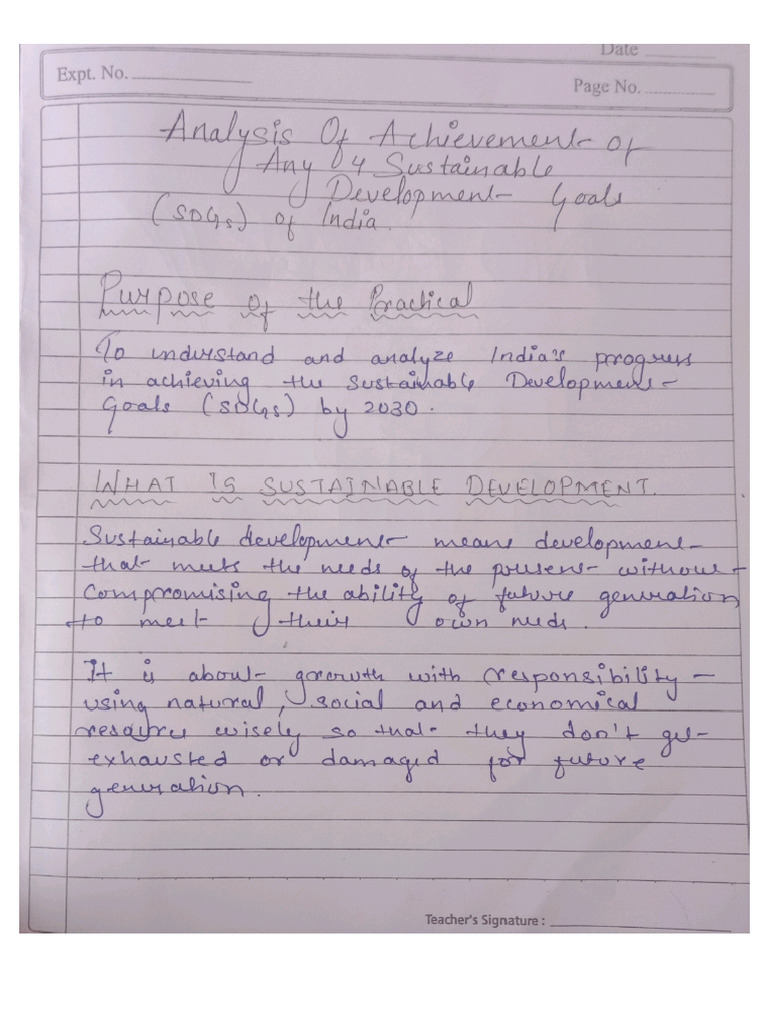 Date
Expt. No.
Page No.
Analysis Of Achievement of
Any 4 Sustainable
Development Goals
(SDGs) of India.
Purpose of the Practical
To understand and analyze India's progress
in achieving the Sustainable Development
Goals (SDGs) by 2030.
WHAT IS SUSTAINABLE DEVELOPMENT.
Sustainable development means development
that meets the needs of the present without
compromising the ability of future generation
to meet their own needs.
It is about growth with responsibility —
using natural, social and economical
resource wisely so that they don't get
exhausted or damaged for future
generation.
Teacher's Signature :